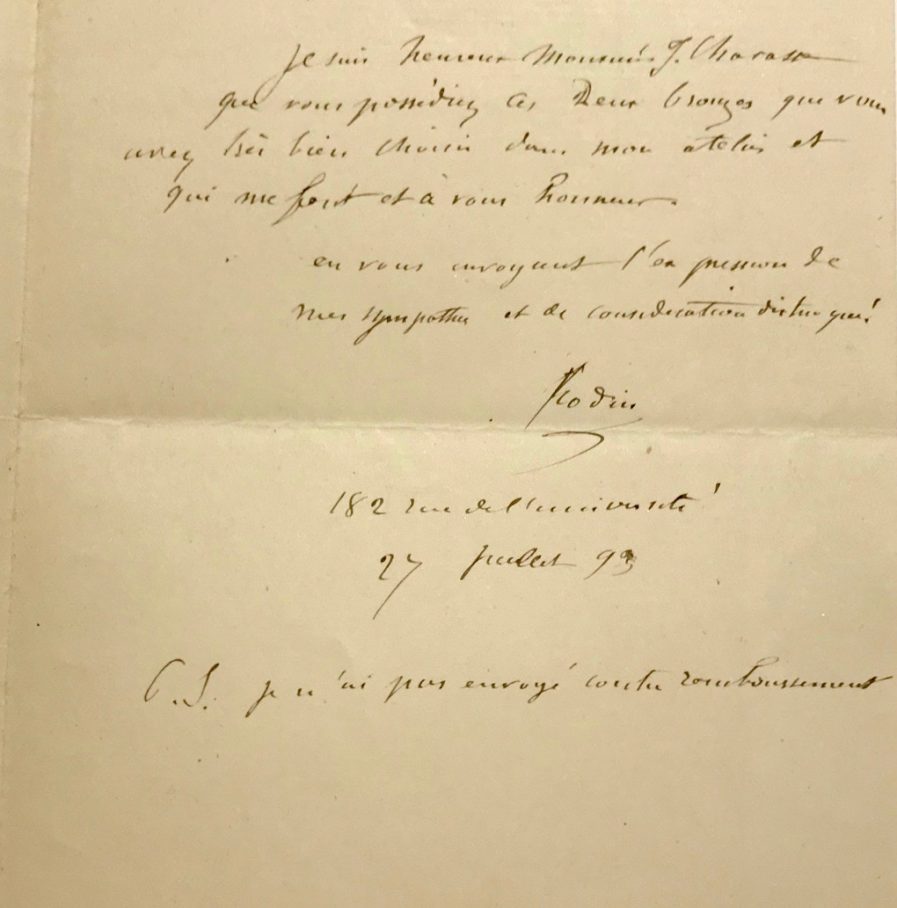 Je suis heureux Monsieur J. Charasse
que vous possédiez ces Deux bronzes que vous
avez très bien choisis dans mon atelier et
qui me font et à vous honneur.
en vous envoyant l'expression de
mes sympathie et de consideration distingué
Rodin
182 rue de l'université
27 Juillet 93
P.S. je n'ai pas envoyé contre remboussement